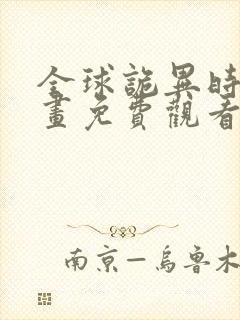 全球詭異時
畫免費觀看
南京—烏魯木